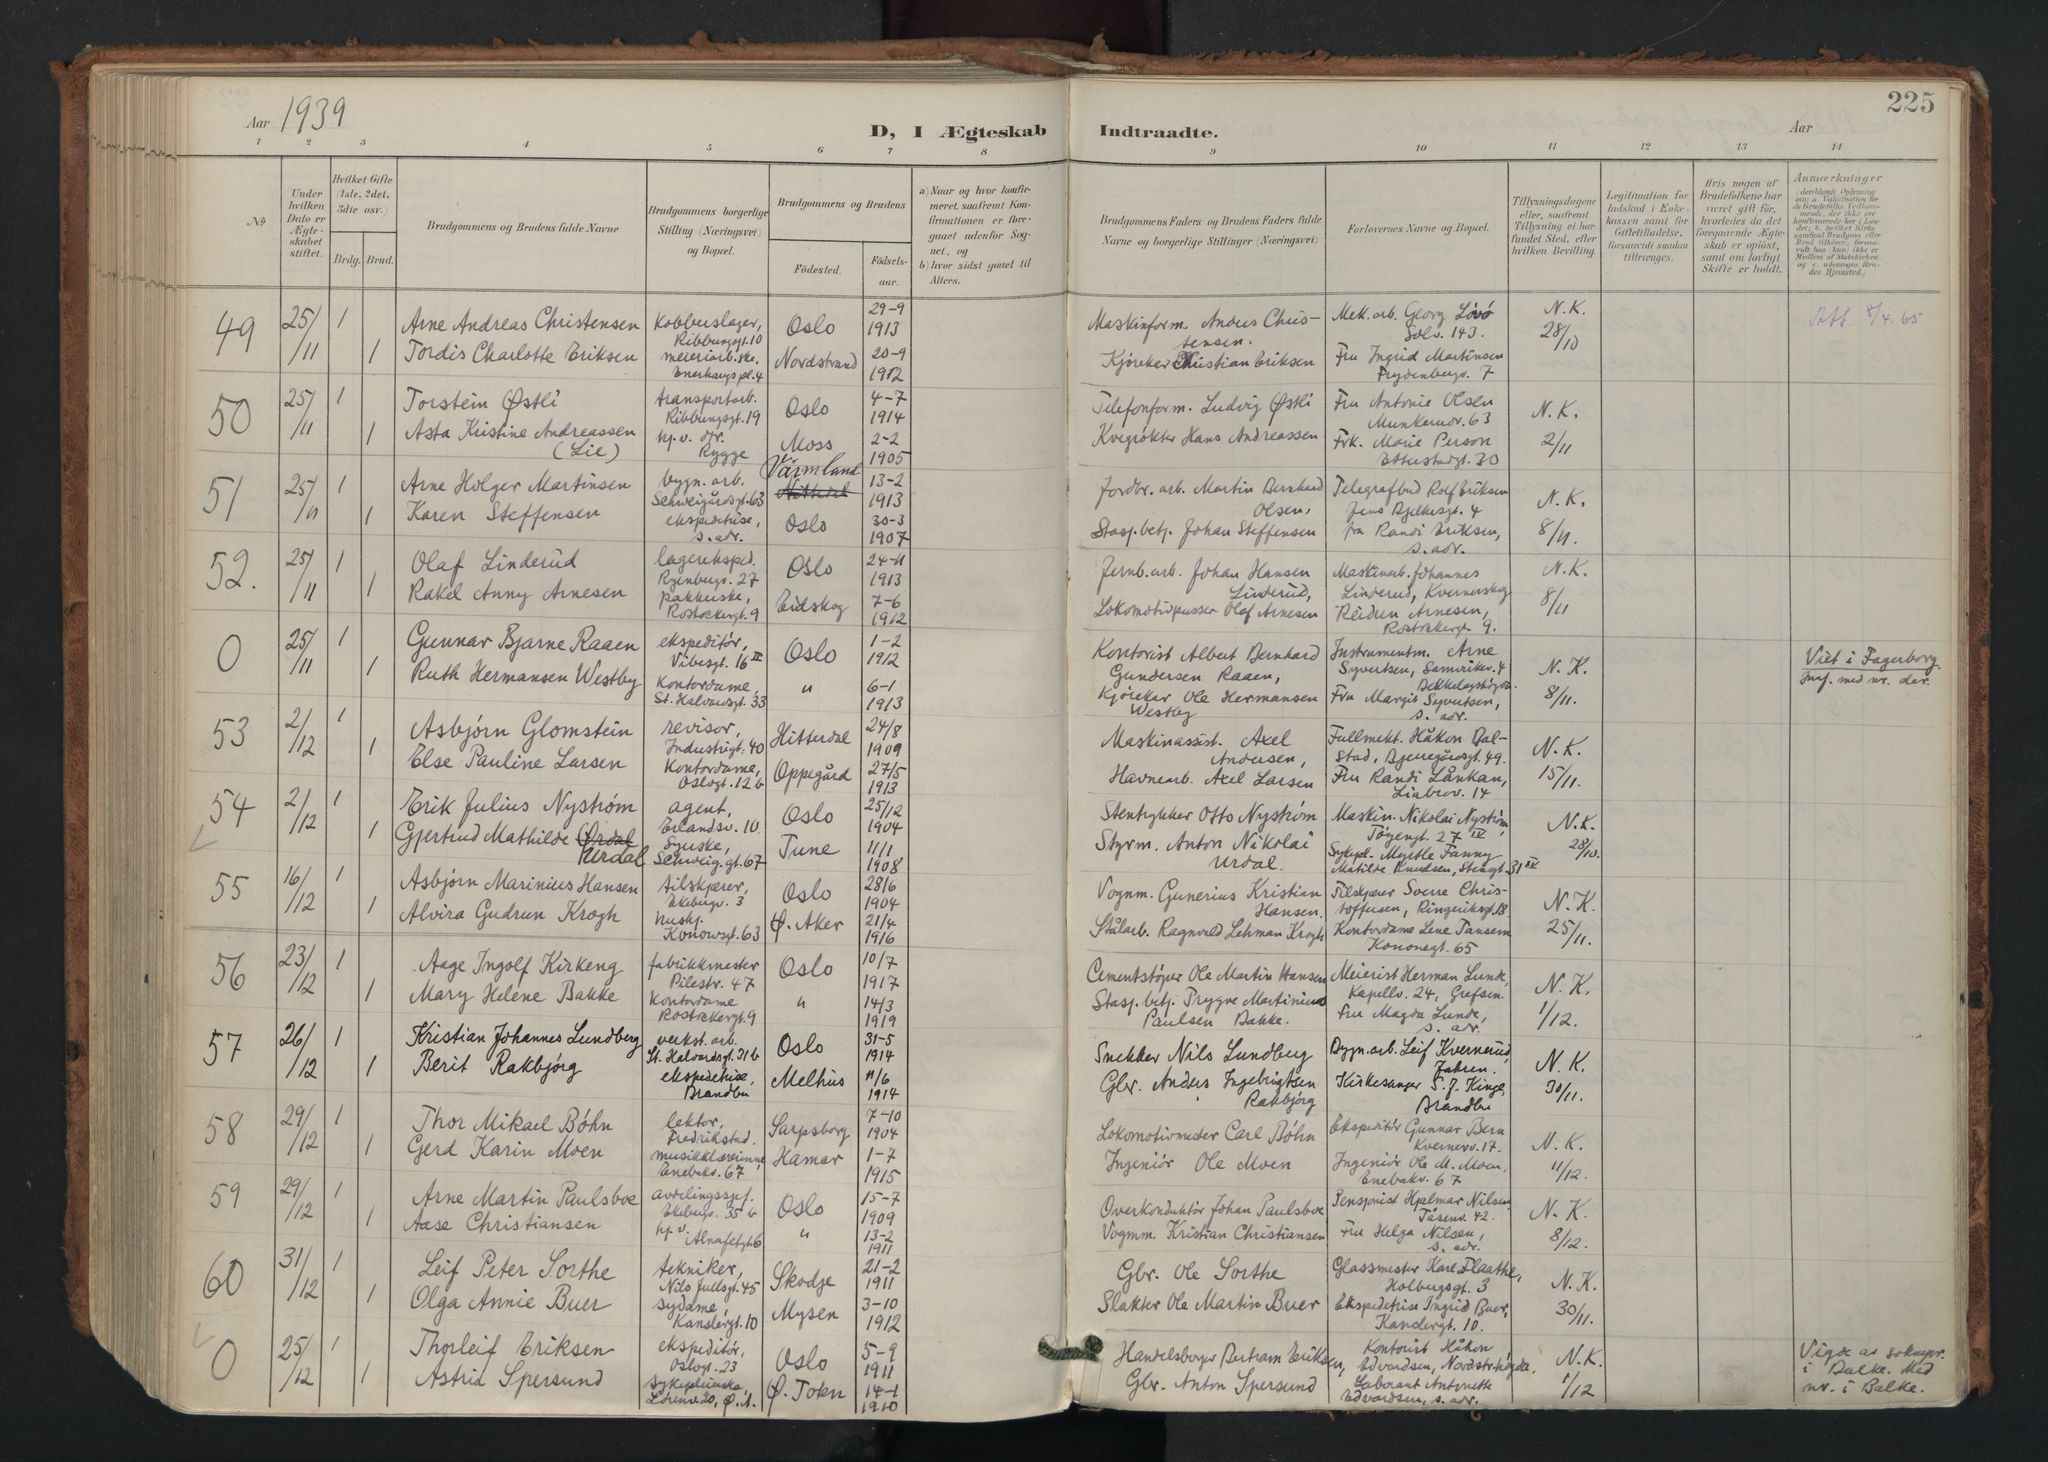 225
Aar 1939
D, I Ægteskab Indtraadte.
Aar
1 2 3 4 5 6 7 8 9 10 11 12 13 14
No
Under hvilken Dato er Ægteskabet stiftet.
Hvilket Gifte (1ste, 2det, 3die osv.)
Brdg. Brud.
Brudgommens og Brudens fulde Navne
Brudgommens borgerlige Stilling (Næringsvei) og Bopæl.
Brudgommens og Brudens
Fødested. Fødselsaar.
a) Naar og hvor konfirmeret, saafremt Konfirmationen er foregaaet udenfor Sognet, og
b) hvor sidst gaaet til Alters.
Brudgommens Faders og Brudens Faders fulde Navne og borgerlige Stillinger (Næringsvei)
Forlovernes Navne og Bopæl.
Tillysningsdagene eller, saafremt Tillysning ei har fundet Sted, efter hvilken Bevilling.
Legitimation for Indskud i Enkekassen samt for Giftetilladelse, forsaavidt saadan tiltrænges.
Hvis nogen af Brudefolkene har været gift før, hvorledes da det foregaaende Ægteskab er opløst, samt om lovligt Skifte er holdt.
Anmærkninger
49 25/11 1 Arne Andreas Christensen kobberslager, Ribbungsgt. 10 Oslo 29-9 1913 Maskinform. Anders Christensen. Mek. arb. Georg Lövö Solv. 143. N.K. 28/10 8/4. 65
1 Tordis Charlotte Eriksen meieriarb.ske. Enerhaugspl. 4 Nordstrand 20-9 1912 Kjørekar Christian Eriksen Fru Ingrid Martinsen Frydenbergv. 7
50 25/11 1 Torstein Østli transportarb. Ribbungsgt. 19 Oslo 4-7 1914 Telefonform. Ludvig Østli Fru Antonie Olsen Munkerudv. 63 N.K. 2/11
1 Asta Kristine Andreassen (Lie) hp. v. dr. Rygge Moss 2-2 1905 Kvegrøkter Hans Andreassen Frk. Marie Person Etterstadgt. 30
51 25/11 1 Arne Holger Martinsen bygn. arb. Schweigårdsgt. 63 Värmland 13-2 1913 Jordbr. arb. Martin Bernhard Olsen, Telegrafbud Rolf Eriksen Jens Bjelkesgt. 4 N.K. 8/11.
1 Karen Steffensen ekspeditrise, s. adr. Oslo 30-3 1907 Stasj. betj. Johan Steffensen fru Randi Eriksen, s. adr.
52. 25/11 1 Olaf Linderud lagereksped. Ryenbergv. 27 Oslo 24-11 1913 Jernb. arb. Johan Hansen Linderud, Maskinarb. Johannes Linderud, Kvernerskog N.K. 8/11
1 Rakel Anny Arnesen pakkerske, Rostockergt. 9 Eidskog 7-6 1912 Lokomotivpusser Olaf Arnesen Reidun Arnesen, Rostockergt. 9.
0 25/11 1 Gunnar Bjarne Raaen ekspeditör, Vibesgt. 16 II Oslo 1-2 1912 Kontorist Albert Bernhard Gundersen Raaen, Instrumentm. Arne Syvertsen, N.K. 8/11. Viet i Fagerborg. Innf. med nr. der.
1 Ruth Hermansen Westby kontordame, St. Halvardsgt. 33 " 6-1 1913 Kjørekar Ole Hermansen Westby Fru Margit Syvertsen, s. adr.
53 2/12 1 Asbjørn Glomstein revisor, Industrigt. 40 Hitterdal 24/8 1909 Maskinassist. Axel Andersen, Fullmekt. Håkon Dalstad, Bjerregårdsgt. 49. N.K. 15/11.
1 Else Pauline Larsen kontordame, Oslogt. 12 b Oppegård 27/5 1913 Havnearb. Axel Larsen Fru Randi Lånkan, Liabrov. 14
54 2/12 1 Erik Julius Nystrøm agent, Erlandsv. 10. Oslo 25/12 1904 Stentrykker Otto Nystrøm Maskin. Nikolai Nystrøm, Tøyengt. 27 IV, N.K. 28/10.
1 Gjertrud Mathilde Ørdal Urdal Syerske, Schweig.gt. 67 Tune 11/1 1908 Styrm. Anton Nikolai Urdal. Sykepl. Myrtle Fanny Matilde Knudsen, Stensgt. 31 IV
55 16/12 1 Asbjørn Marinius Hansen tilskjærer, Ekebergv. 3 Oslo 28/6 1904 Vognm. Gunerius Kristian Hansen. Tilskjærer Sverre Christoffersen, Ringeriksgt. 18. N.K. 25/11.
1 Alvira Gudrun Krogh hushj. Konowsgt. 63 Ø. Aker 21/4 1916 Stålarb. Ragnvald Lehman Krogh Kontordame Lene Tansem Konowsgt. 65
56 23/12 1 Aage Ingolf Kirkeng fabrikkmester Pilestr. 47 Oslo 10/7 1917 Cementstøper Ole Martin Hansen Meierist Herman Lunde, Kapellv. 24, Grefsen. N.K. 1/12.
1 Mary Helene Bakke kontordame Rostockergt. 9 " 14/3 1919 Stasj. betj. Trygve Martinius Paulsen Bakke. Fru Magda Lunde, s. adr.
57 26/12 1 Kristian Johannes Lundberg verkst. arb. St. Halvardsgt. 31 b Oslo 31-5 1914 Snekker Nils Lundberg Bygn. arb. Leif Kvernerud, Jahren. N.K. 30/11.
1 Berit Rakbjørg ekspeditrise, Brandbu Melhus 11/6 1914 Gbr. Anders Ingebrigtsen Rakbjørg Kirkesanger S. J. Kinge, Brandbu
58 29/12 1 Thor Mikael Bøhn lektor, Fredrikstad. Sarpsborg 7-10 1904 Lokomotivmester Carl Bøhn Ekspeditør Gunnar Bern Kvernerv. 17. N.K. 11/12.
1 Gerd Karin Moen musikklærerinne, Enebakv. 67 Hamar 1-7 1915 Ingeniör Ole Moen Ingeniör Ole M. Moen, Enebakv. 67
59 29/12 1 Arne Martin Paulsboe avdelingssjef. Ekebergv. 35 b Oslo 15-7 1909 Overkonduktör Johan Paulsboe Pensjonist Hjalmar Nilsen Tåsenv. 42. N.K. 8/12.
1 Aase Christiansen hp. v. Alnafetgt 6 " 13-2 1911 Vognm. Kristian Christiansen Fru Helga Nilsen, s. adr.
60 31/12 1 Leif Peter Sorthe tekniker, Nils Juelsgt. 45 Skodje 21-2 1911 Gbr. Ole Sorthe Glassmester Karl Flaathe, Holbergsgt. 3 N.K. 30/11.
1 Olga Annie Buer sydame, Kanslergt. 10 Mysen 3-10 1912 Slakter Ole Martin Buer Ekspeditrise Ingrid Buer, Kanslergt. 10.
0 25/12 1 Thorleif Eriksen ekspeditör, Oslogt. 23 Oslo 5-9 1911 Handelsborger Bertram Eriksen, Kontorist Håkon Edvardsen, Nordstrhögda. N.K. 1/12 Vigde av soknepr. i Balke. Med nr. i Balke.
1 Astrid Spersund sykepleierske, Lörenv. 20, Ø. A. Ø. Toten 14-1 1910 Gbr. Anton Spersund Laborant Antonette Edvardsen, s. adr.